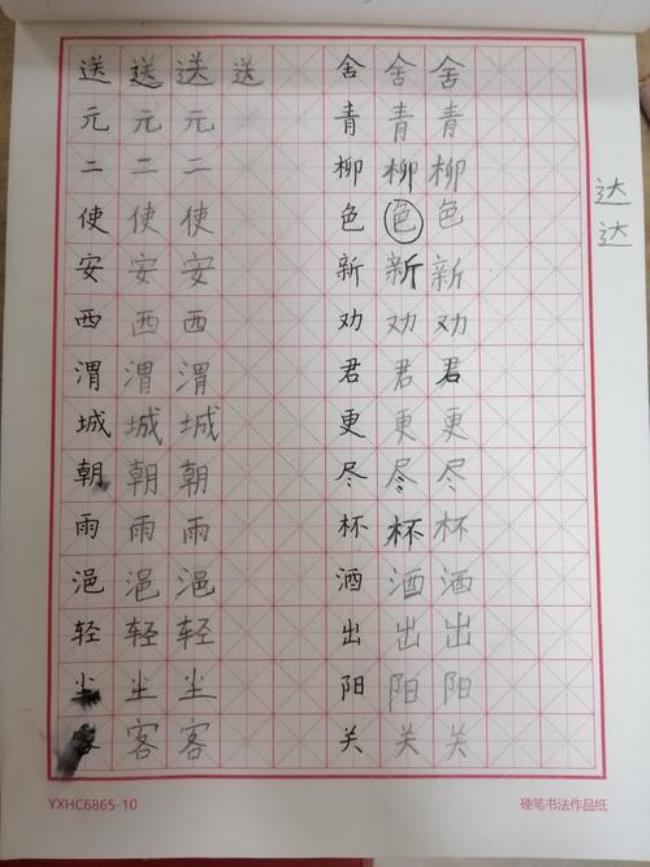 送 送 送 送 舍 舍 舍
元 元 元 青 青 青
二 二 二 柳 柳 柳
使 使 使 色 色 色
安 安 安 新 新 新
西 西 西 劝 劝 劝
渭 渭 渭 君 君 君
城 城 城 更 更 更
朝 朝 朝 尽 尽 尽
雨 雨 雨 杯 杯 杯
浥 浥 浥 酒 酒 酒
轻 轻 轻 出 出 出
尘 尘 尘 阳 阳 阳
客 客 客 关 关 关
达
达
YXHC6865-10 硬笔书法作品纸